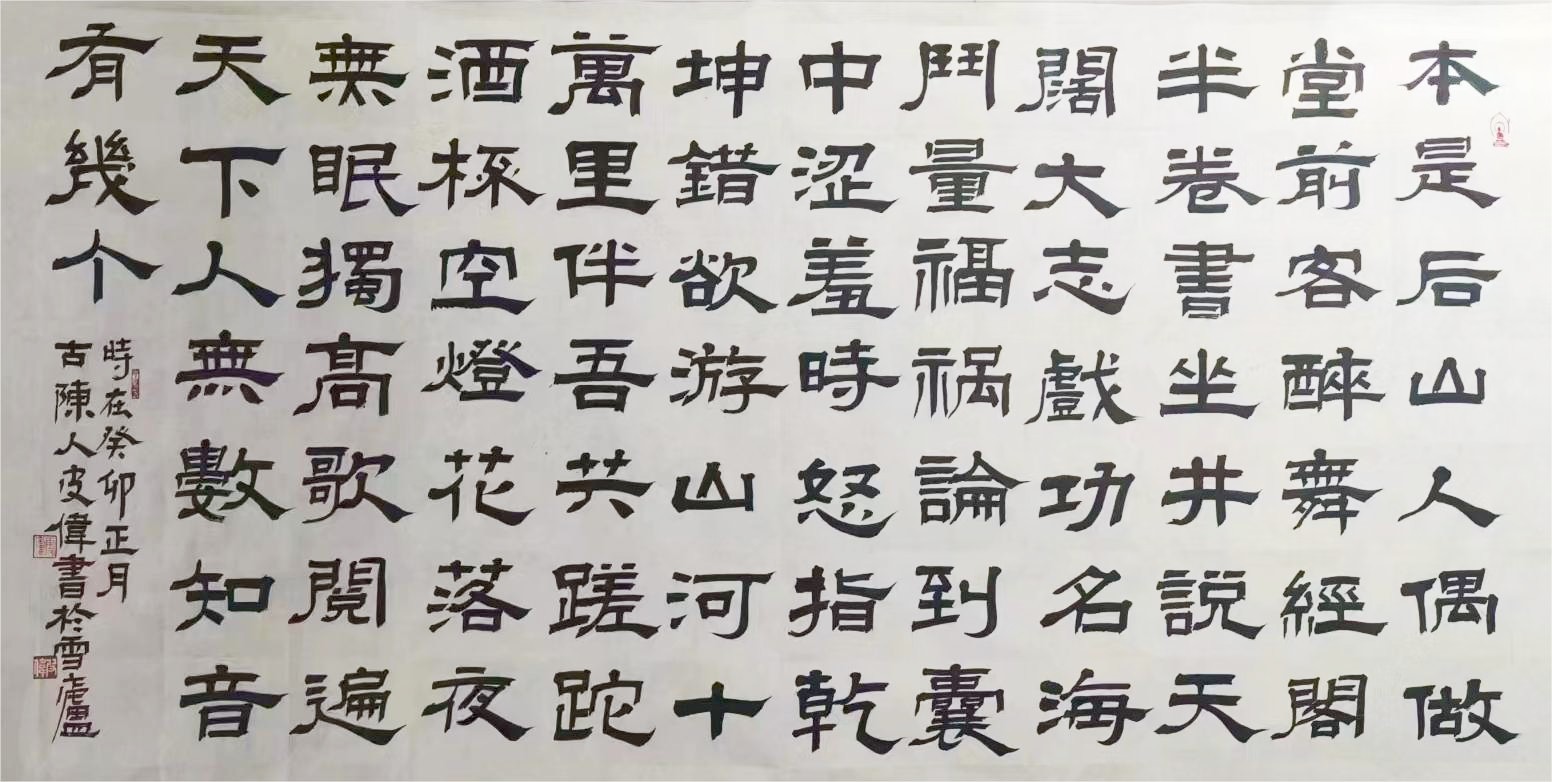 本是后山人偶做
堂前客醉舞經閣
半卷書坐井說天
闊大志戲功名海
鬥量福祸論到囊
中涩羞時怒指乾
坤錯欲游山河十
萬里伴吾共蹉跎
酒杯空燈花落夜
無眠獨高歌閱遍
天下人無數知音
有幾个
時在癸卯正月
古陳人皮偉書於雪廬